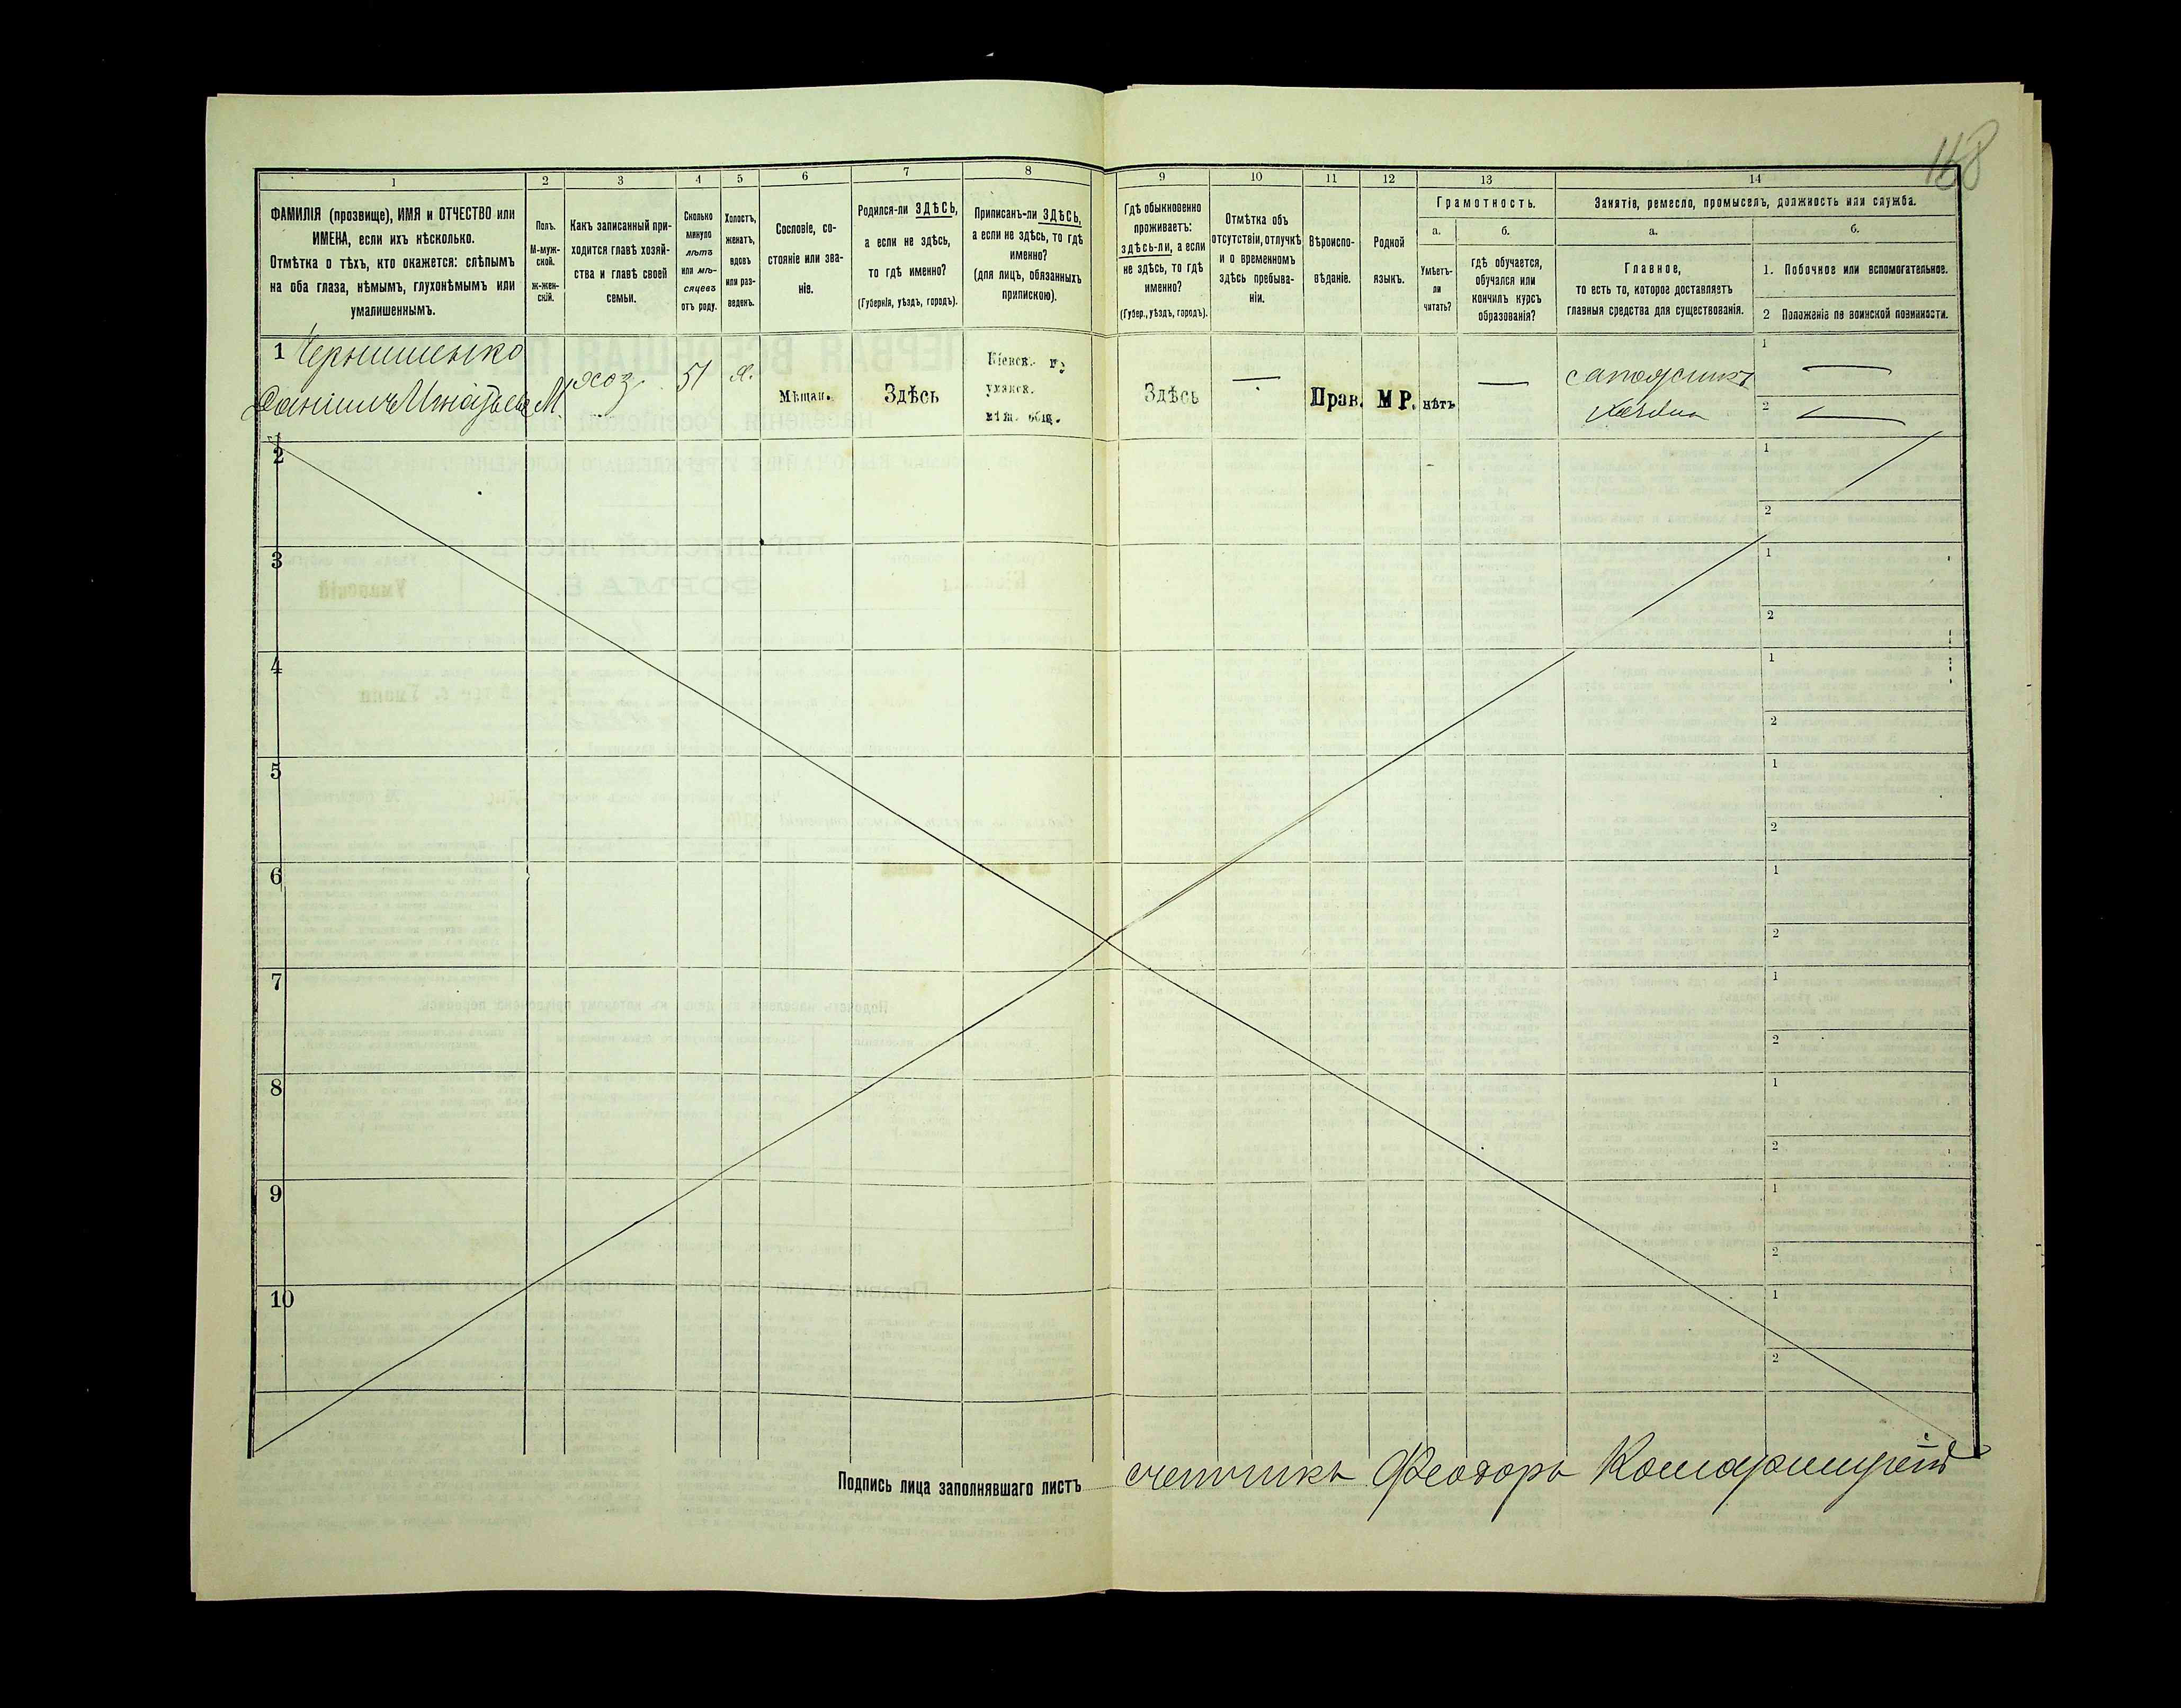 168
1
2
3
4
5
6
7
8
9
10
11
12
13
14
ФАМИЛІЯ (прозвище), ИМЯ и ОТЧЕСТВО или
ИМЕНА, если ихъ нѣсколько.
Отмѣтка о тѣхъ, кто окажется: слѣпымъ
на оба глаза, нѣмымъ, глухонѣмымъ или
умалишеннымъ.
Полъ.
М-муж-
ской.
ж-жен-
скій.
Какъ записанный при-
ходится главѣ хозяй-
ства и главѣ своей
семьи.
Сколько
минуло
лѣтъ
или мѣ-
сяцевъ
отъ роду.
Холостъ,
женатъ,
вдовъ
или раз-
веденъ.
Сословіе, со-
стояніе или зва-
ніе.
Родился-ли ЗДѢСЬ,
а если не здѣсь,
то гдѣ именно?
(Губернія, уѣздъ, городъ).
Приписанъ-ли ЗДѢСЬ,
а если не здѣсь, то гдѣ
именно?
(для лицъ, обязанныхъ
припискою).
Гдѣ обыкновенно
проживаетъ:
здѣсь-ли, а если
не здѣсь, то гдѣ
именно?
(Губер., уѣздъ, городъ).
Отмѣтка объ
отсутствіи, отлучкѣ
и о временномъ
здѣсь пребыва-
ніи.
Вѣроиспо-
вѣданіе.
Родной
языкъ.
Грамотность.
а.
Умѣетъ-
ли
читать?
б.
гдѣ обучается,
обучался или
кончилъ курсъ
образованія?
Занятіе, ремесло, промыселъ, должность или служба.
а.
Главное,
то есть то, которое доставляетъ
главныя средства для существованія.
б.
1. Побочное или вспомогательное.
2 Положеніе по воинской повинности.
1 Чернишенко
Даніилъ Игнатьевъ
М
хоз.
51
Мѣщан.
Здѣсь
Кіевск. г.
уманск.
міщ. общ.
Здѣсь
—
Прав.
МР.
нѣтъ
—
сапожникъ
хозяин
1 —
2 —
2
1
2
3
1
2
4
1
2
5
1
2
6
1
2
7
1
2
8
1
2
9
1
2
10
1
2
Подпись лица заполнявшаго листъ счетчикъ Феодоръ Комарницкій